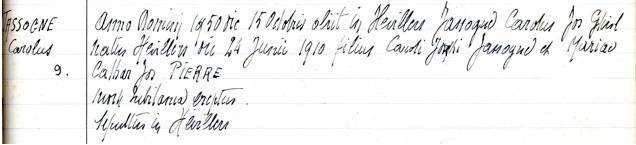 JASSOGNE Anno Domini 1950 die 15 Octobris obiit in Hevillers Jassogne Carolus Jos Ghisl
Carolus natus Hevillers die 24 Junii 1910 filius Caroli Josephi Jassogne et Mariae
9. Cathar Jos PIERRE
morte subitanea ereptus.
Sepultus in Hevillers